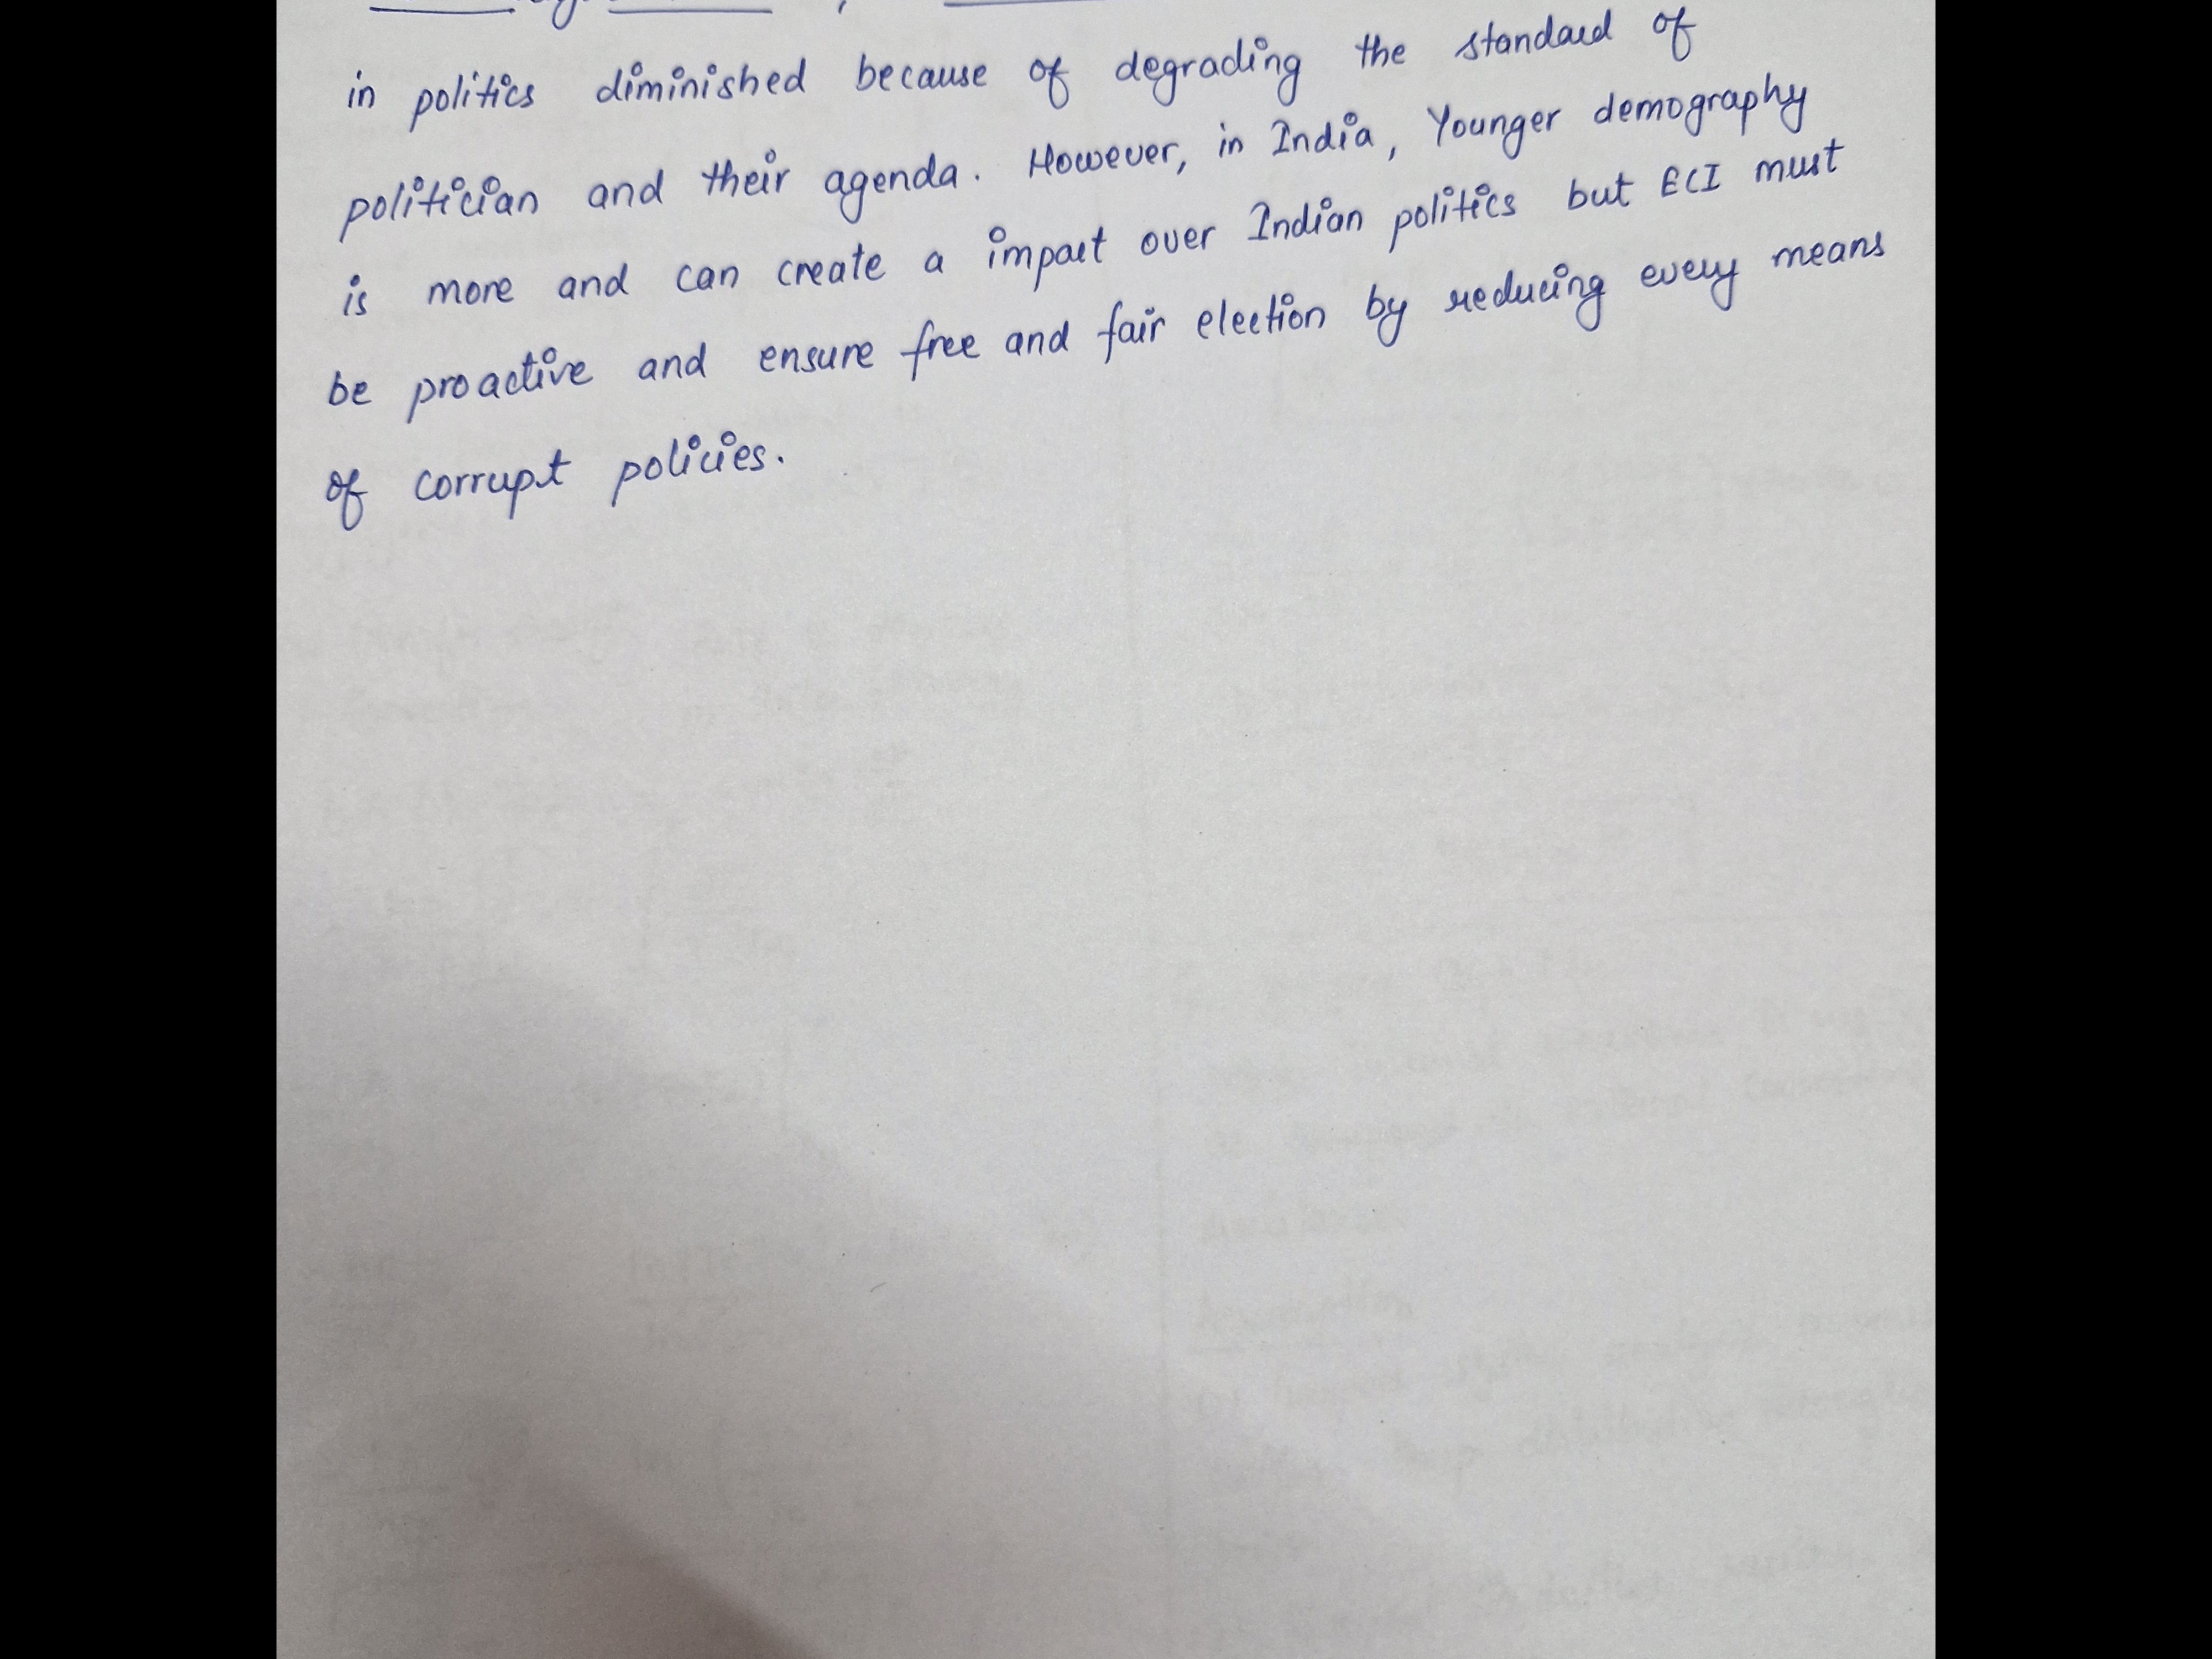 in politics diminished because of degrading the standard of
politician and their agenda. However, in India, Younger demography
is more and can create a impact over Indian politics but ECI must
be proactive and ensure free and fair election by reducing every means
of corrupt policies.